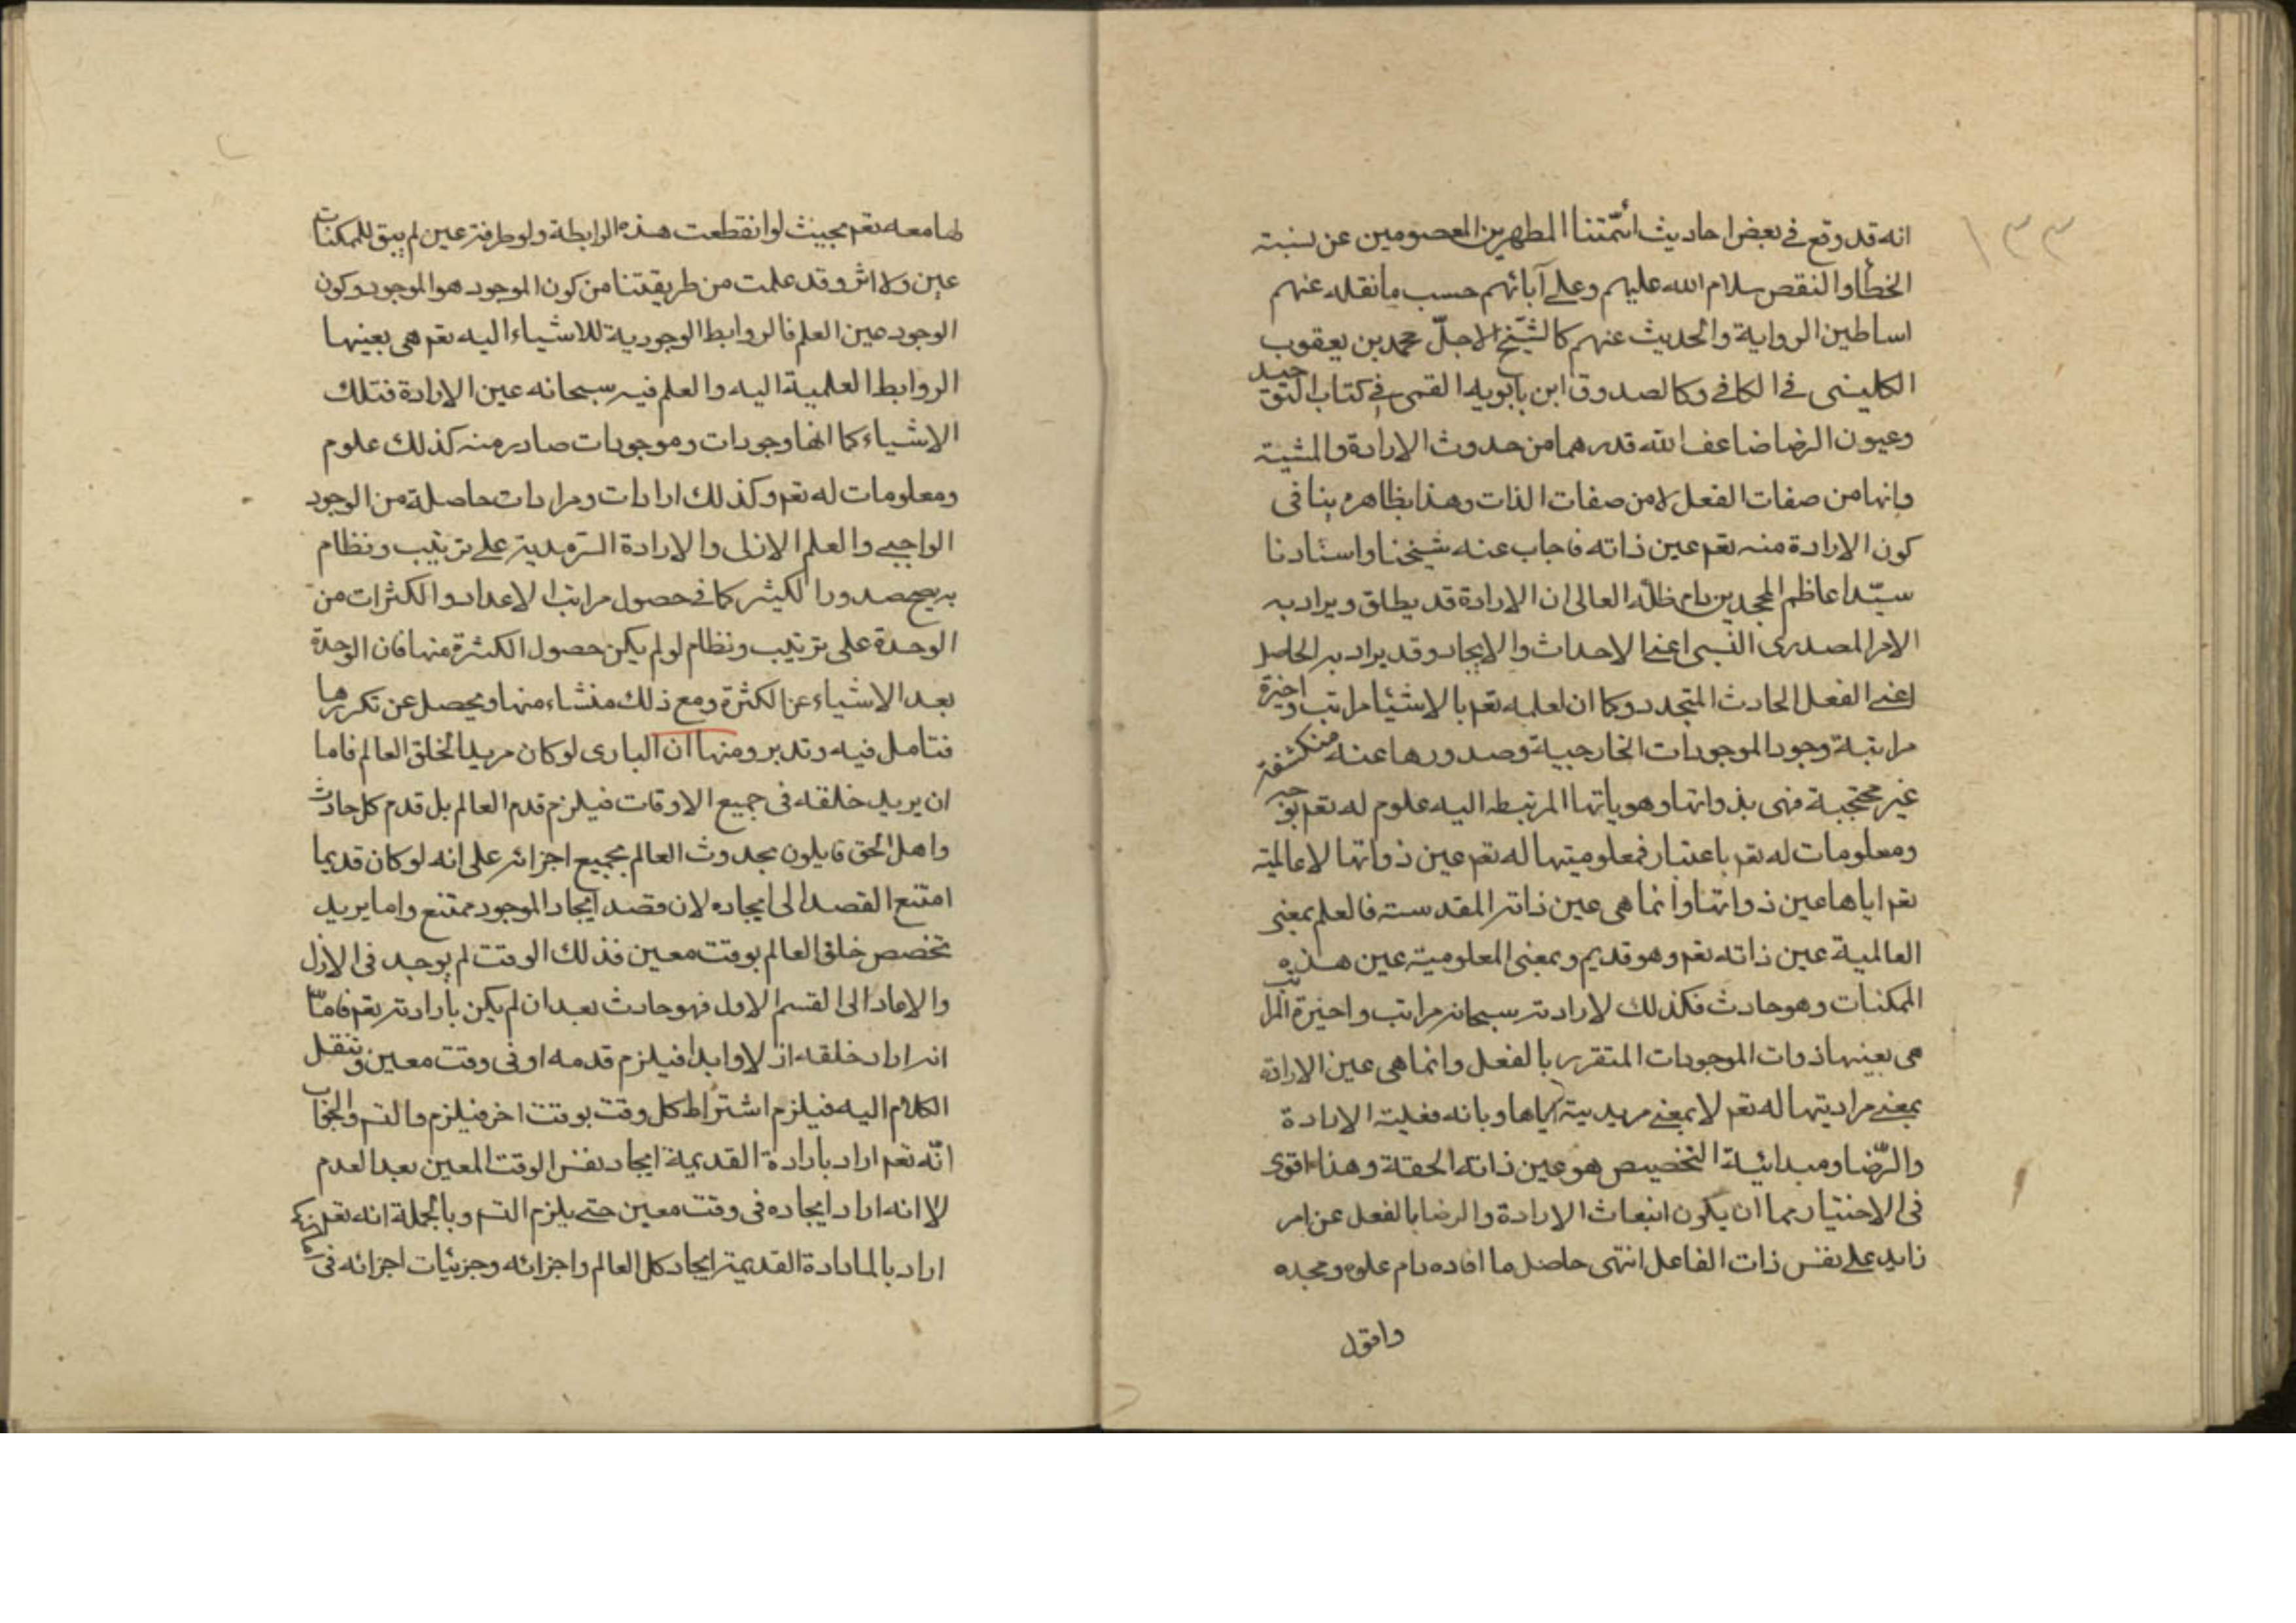 ١٣٣
انه قد وقع فى بعض احاديث ائمّتنا المطهرين المعصومين عن نسبة
الخطأ والنقص سلام الله عليهم وعلى آبائهم حسب ما نقله عنهم
اساطين الرواية والحديث عنهم كالشيخ الاجلّ محمد بن يعقوب
الكلينى فى الكافى وكالصدوق ابن بابويه القمى فى كتاب التوحيد
وعيون الرضا ضاعف الله قدرهما من حدوث الارادة والمشية
وانها من صفات الفعل لا من صفات الذات وهذا بظاهره ينافى
كون الارادة منه تعم عين ذاته فاجاب عنه شيخنا واستادنا
سيّد اعاظم المجدين دام ظلّه العالى ان الارادة قد يطلق ويراد به
الامر المصدرى النسبى اعنى الاحداث والايجاد وقد يراد به الحاصل
اعنى الفعل الحادث المتجدد وكما ان لعلمه تعم بالاشيئا مراتب واخيرة
مراتبة وجود الموجودات الخارجيية وصدورها عنه منكشفة
غير محتجبة فهى بذواتها وهوياتها المرتبطه اليه علوم له تعم بوجه
ومعلومات له تعم باعتبار فمعلوميتها له تعم عين ذواتها لا عالمية
تعم اياها عين ذواتنا وانما هى عين ذاته المقدسته فالعلم بمعنى
العالمية عين ذاته تعم وهو قديم وبمعنى المعلومية عين هذه
الممكنات وهو حادث فكذلك لارادته سبحانه مراتب واخيرة المراتب
هى بعينها ذوات الموجودات المتقرره بالفعل وانما هى عين الارادة
بمعنى مراديتها له تعم لا بمعنى مريديية اياها وبانه فعلية الارادة
والرّضا ومبدائية التخصيص هو عين ذاته الحقة وهذا اقوى
فى الاختيار مما ان يكون انبعاث الارادة والرضا بالفعل عن امر
زايد على نفس ذات الفاعل انتهى حاصل ما افاده دام علوه ومجده
واقول
لها معه تعم بحيث لو انقطعت هذه الرابطة ولو طرفة عين لم يبق للممكنات
عين ولا اثر وقد علمت من طريقتنا من كون الموجود هو الموجود وكون
الوجود عين العلم فالروابط الوجودية للاشياء اليه تعم هى بعينها
الروابط العلمية اليه والعلم فيه سبحانه عين الارادة فتلك
الاشياء كما انها وجودات وموجودات صادره منه كذلك علوم
ومعلومات له تعم وكذلك ارادات ومرادات حاصلة من الوجود
الواجبى والعلم الازلى والارادة السرمدية على ترتيب ونظام
به يصح صدور الكثير كما فى حصول مراتب الاعداد والكثرات من
الوحدة على ترتيب ونظام لو لم يكن حصول الكثرة منها فان الوحدة
بعد الاشياء عن الكثرة ومع ذلك منشاء منها ويحصل عن تكررها
فتامل فيه وتدبر ومنها ان البارى لو كان مريدا لخلق العالم فاما
ان يريد خلقه فى جميع الاوقات فيلزم قدم العالم بل قدم كل حادث
واهل الحق قايلون بحدوث العالم بجميع اجزائه على انه لو كان قديما
امتنع القصد الى ايجاده لان قصد ايجاد الموجود ممتنع واما يريد
تخصص خلق العالم بوقت معين فذلك الوقت لم يوجد فى الازل
والا عاد الى القسم الاول فهو حادث بعد ان لم يكن بارادته تعم فامّا
انه اراد خلقه ازلا وابدا فيلزم قدمه او فى وقت معين وننقل
الكلام اليه فيلزم اشتراط كل وقت بوقت اخر فيلزم والتسم والجواب
انّه تعم اراد بارادة القديمة ايجاد نفس الوقت المعين بعد العدم
لا انه اراد ايجاده فى وقت معين حتى يلزم التسم وبالجملة انه تعم
اراد بالمارادة القديمة ايجاد كل العالم واجزائه وجزئيات اجزائه فى